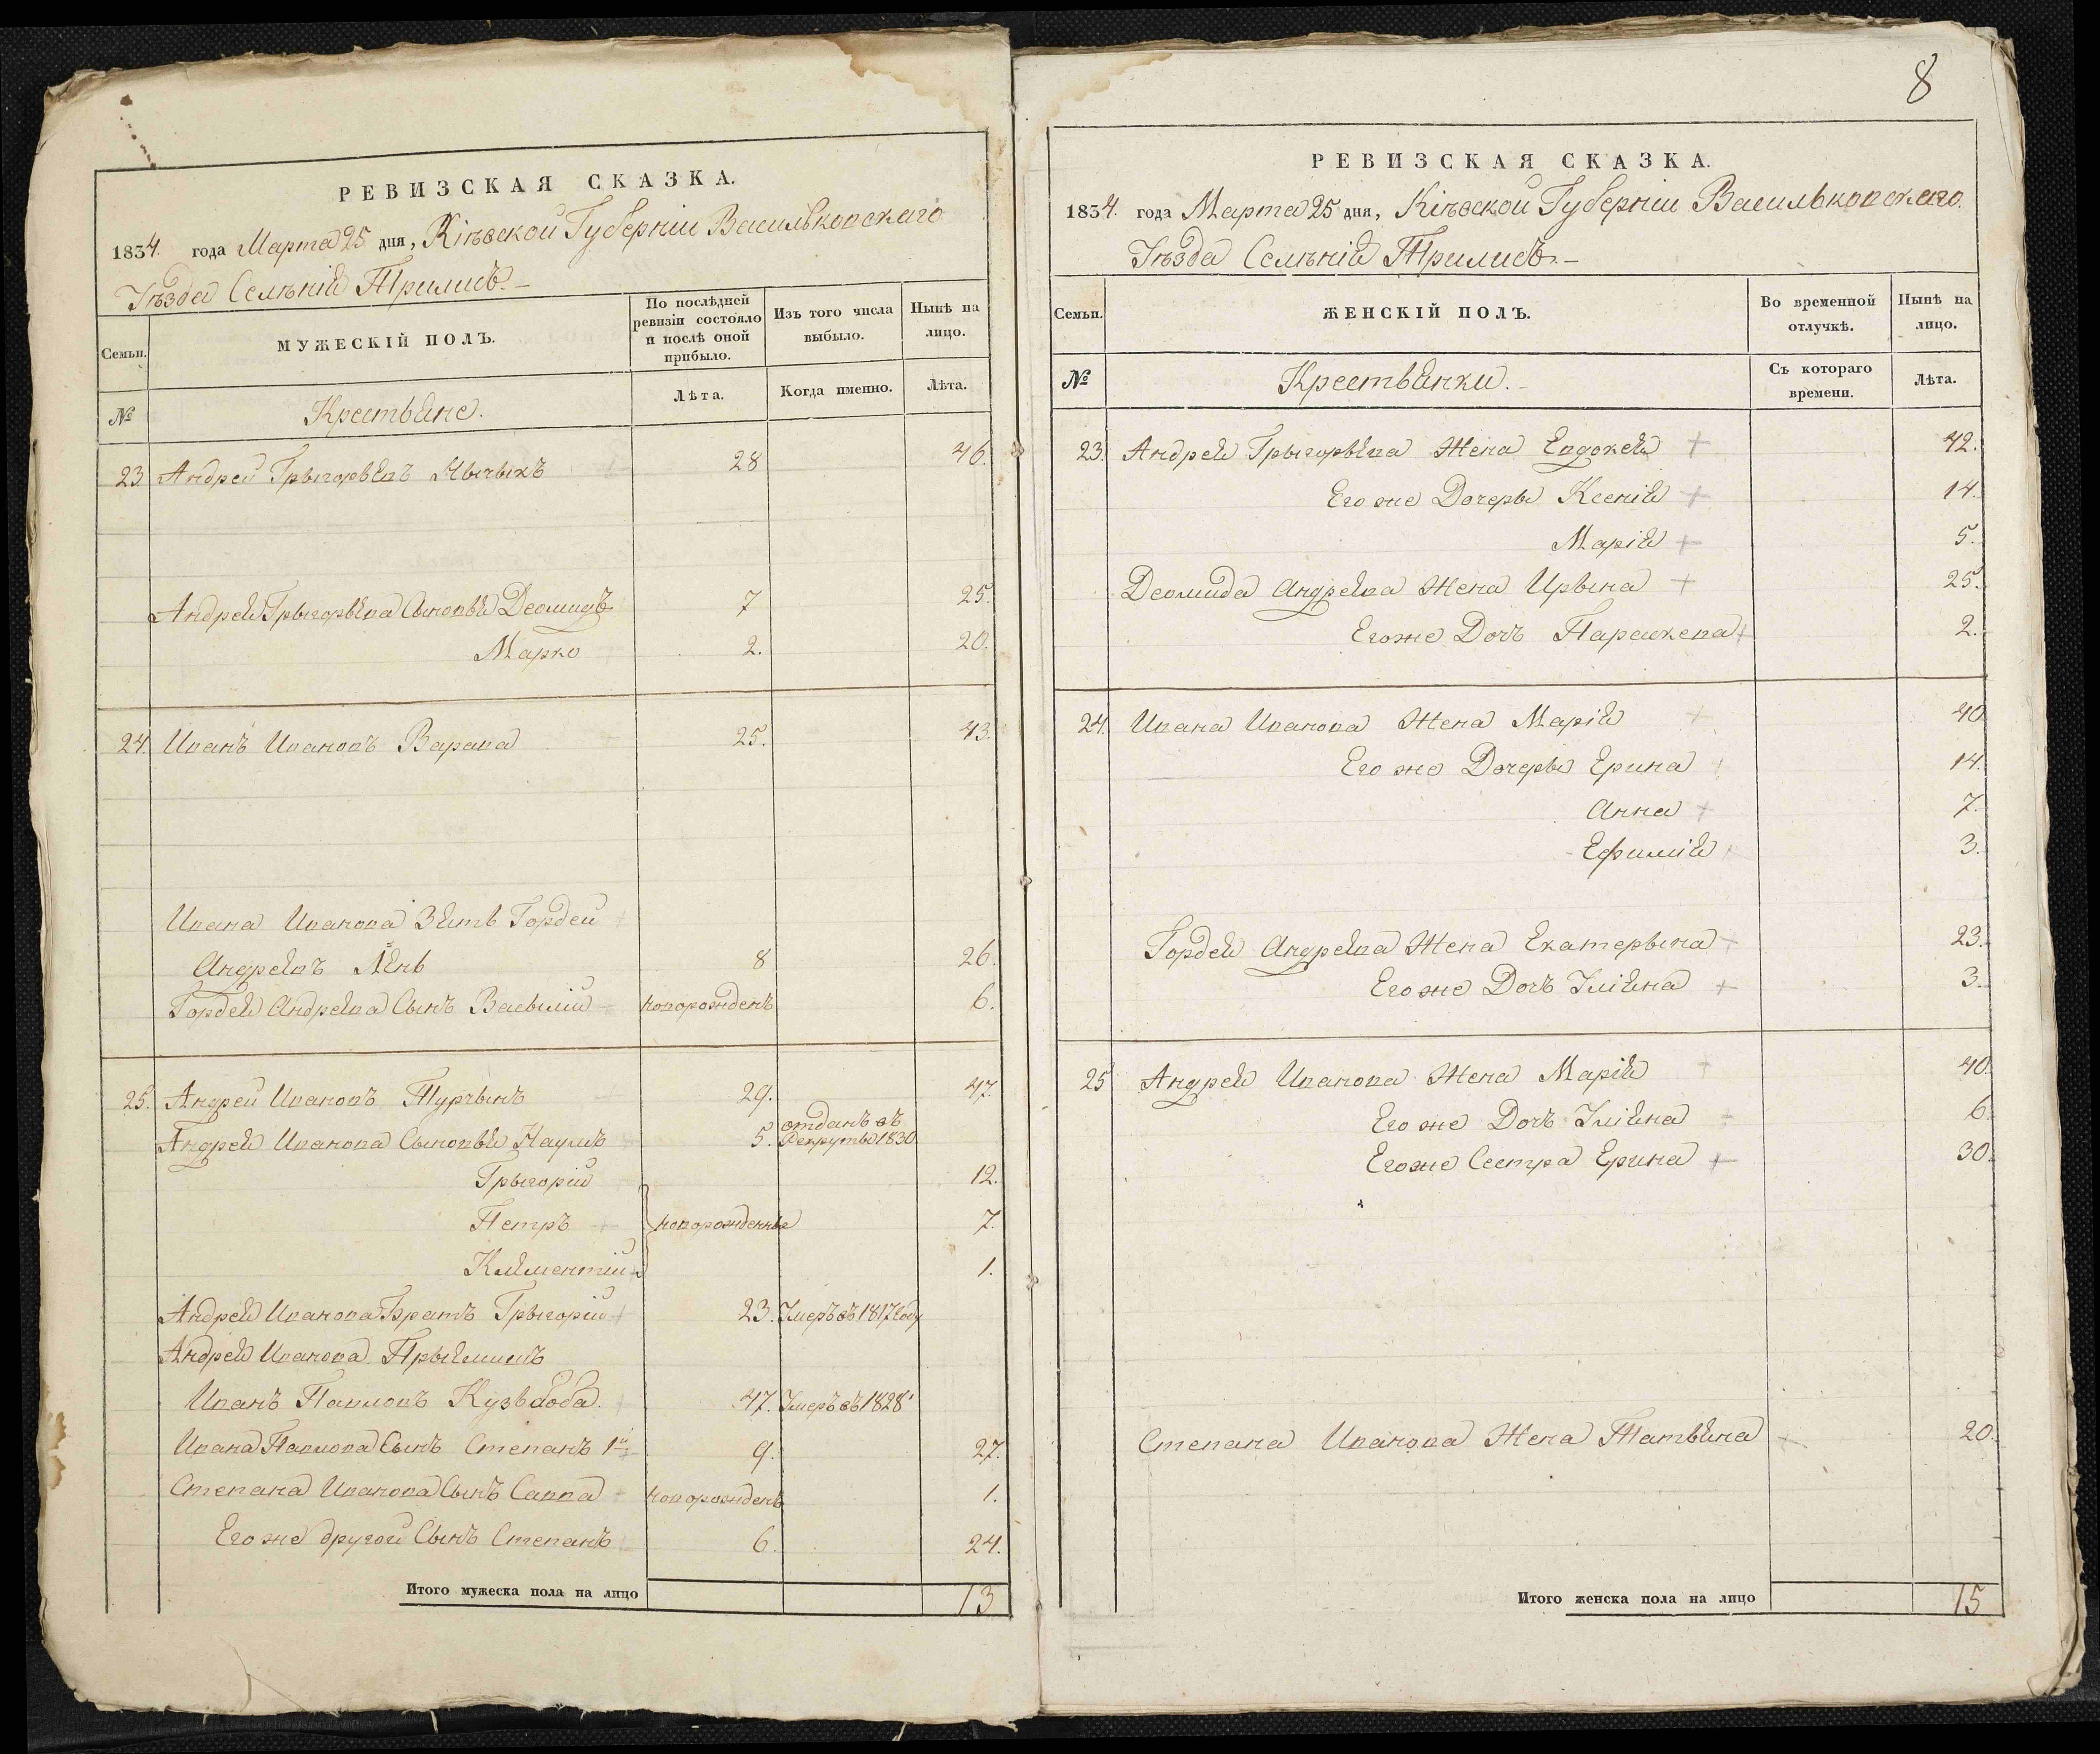 РЕВИЗСКАЯ СКАЗКА.
1834. года Марта 25 дня, Кіевской Губерніи Васильковскаго
Уѣзда Селѣнія Трилисъ.
Семьи.
МУЖЕСКІЙ ПОЛЪ.
По послѣдней ревизіи состояло и послѣ оной прибыло.
Изъ того числа выбыло.
Нынѣ на лицо.
№
Крестьяне.
Лѣта.
Когда именно.
Лѣта.
23 Андрей Грыгорьевъ 28 46.
Андрея Грыгорьева Сыновья Деомидъ 7 25.
Марко 2. 20.
24. Иванъ Ивановъ Варава 25. 43.
Ивана Иванова Зять Гордей
Андреевъ 8 26.
Гордея Андреева Сынъ Васылій новорожденъ 6.
25. Андрей Ивановъ Турчынъ 29. 47.
Андрея Иванова Сыновья Наумъ 5. отданъ въ Рекруты 1830.
Грыгорій 12.
Петръ новорожденные 7.
Клементій 1.
Андрея Иванова Братъ Грыгорій 23. Умеръ въ 1817 Году
Андрея Иванова Прыемышъ
Иванъ Павловъ Кузьбоба 47. Умеръ въ 1828
Ивана Павлова Сынъ Степанъ 1й 9. 27.
Степана Иванова Сынъ Савва новорожденъ 1.
Его же другой Сынъ Степанъ 6. 24.
Итого мужеска пола на лицо 13
8
РЕВИЗСКАЯ СКАЗКА.
1834. года Марта 25 дня, Кіевской Губерніи Васильковскаго.
Уѣзда Селѣнія Трилисъ.
Семьи.
ЖЕНСКІЙ ПОЛЪ.
Во временной отлучкѣ.
Нынѣ на лицо.
№
Крестьянки.
Съ котораго времени.
Лѣта.
23. Андрея Грыгорьева Жена Евдокея 42.
Его же Дочеры Ксенія 14.
Марія 5.
Деомида Андреева Жена Ирына 25.
Его же Дочъ Параскева 2.
24. Ивана Иванова Жена Марія 40
Его же Дочеры Ерина 14.
Анна 7.
Ефимія 3.
Гордея Андреева Жена Екатерына 23.
Его же Дочъ Уліяна 3.
25 Андрея Иванова Жена Марія 40.
Его же Дочъ Уліяна 6.
Его же Сестра Ерина 30.
Степана Иванова Жена Татьяна 20.
Итого женска пола на лицо 15